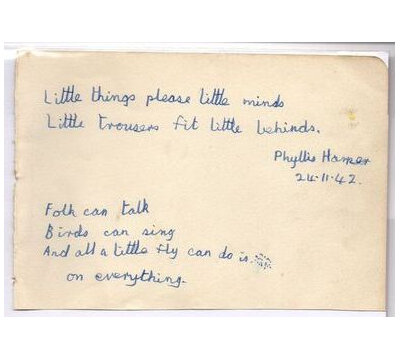 Little things please little minds
Little trousers fit little behinds.
Phyllis Harper
24.11.42.
Folk can talk
Birds can sing
And all a little fly can do is
on everything.